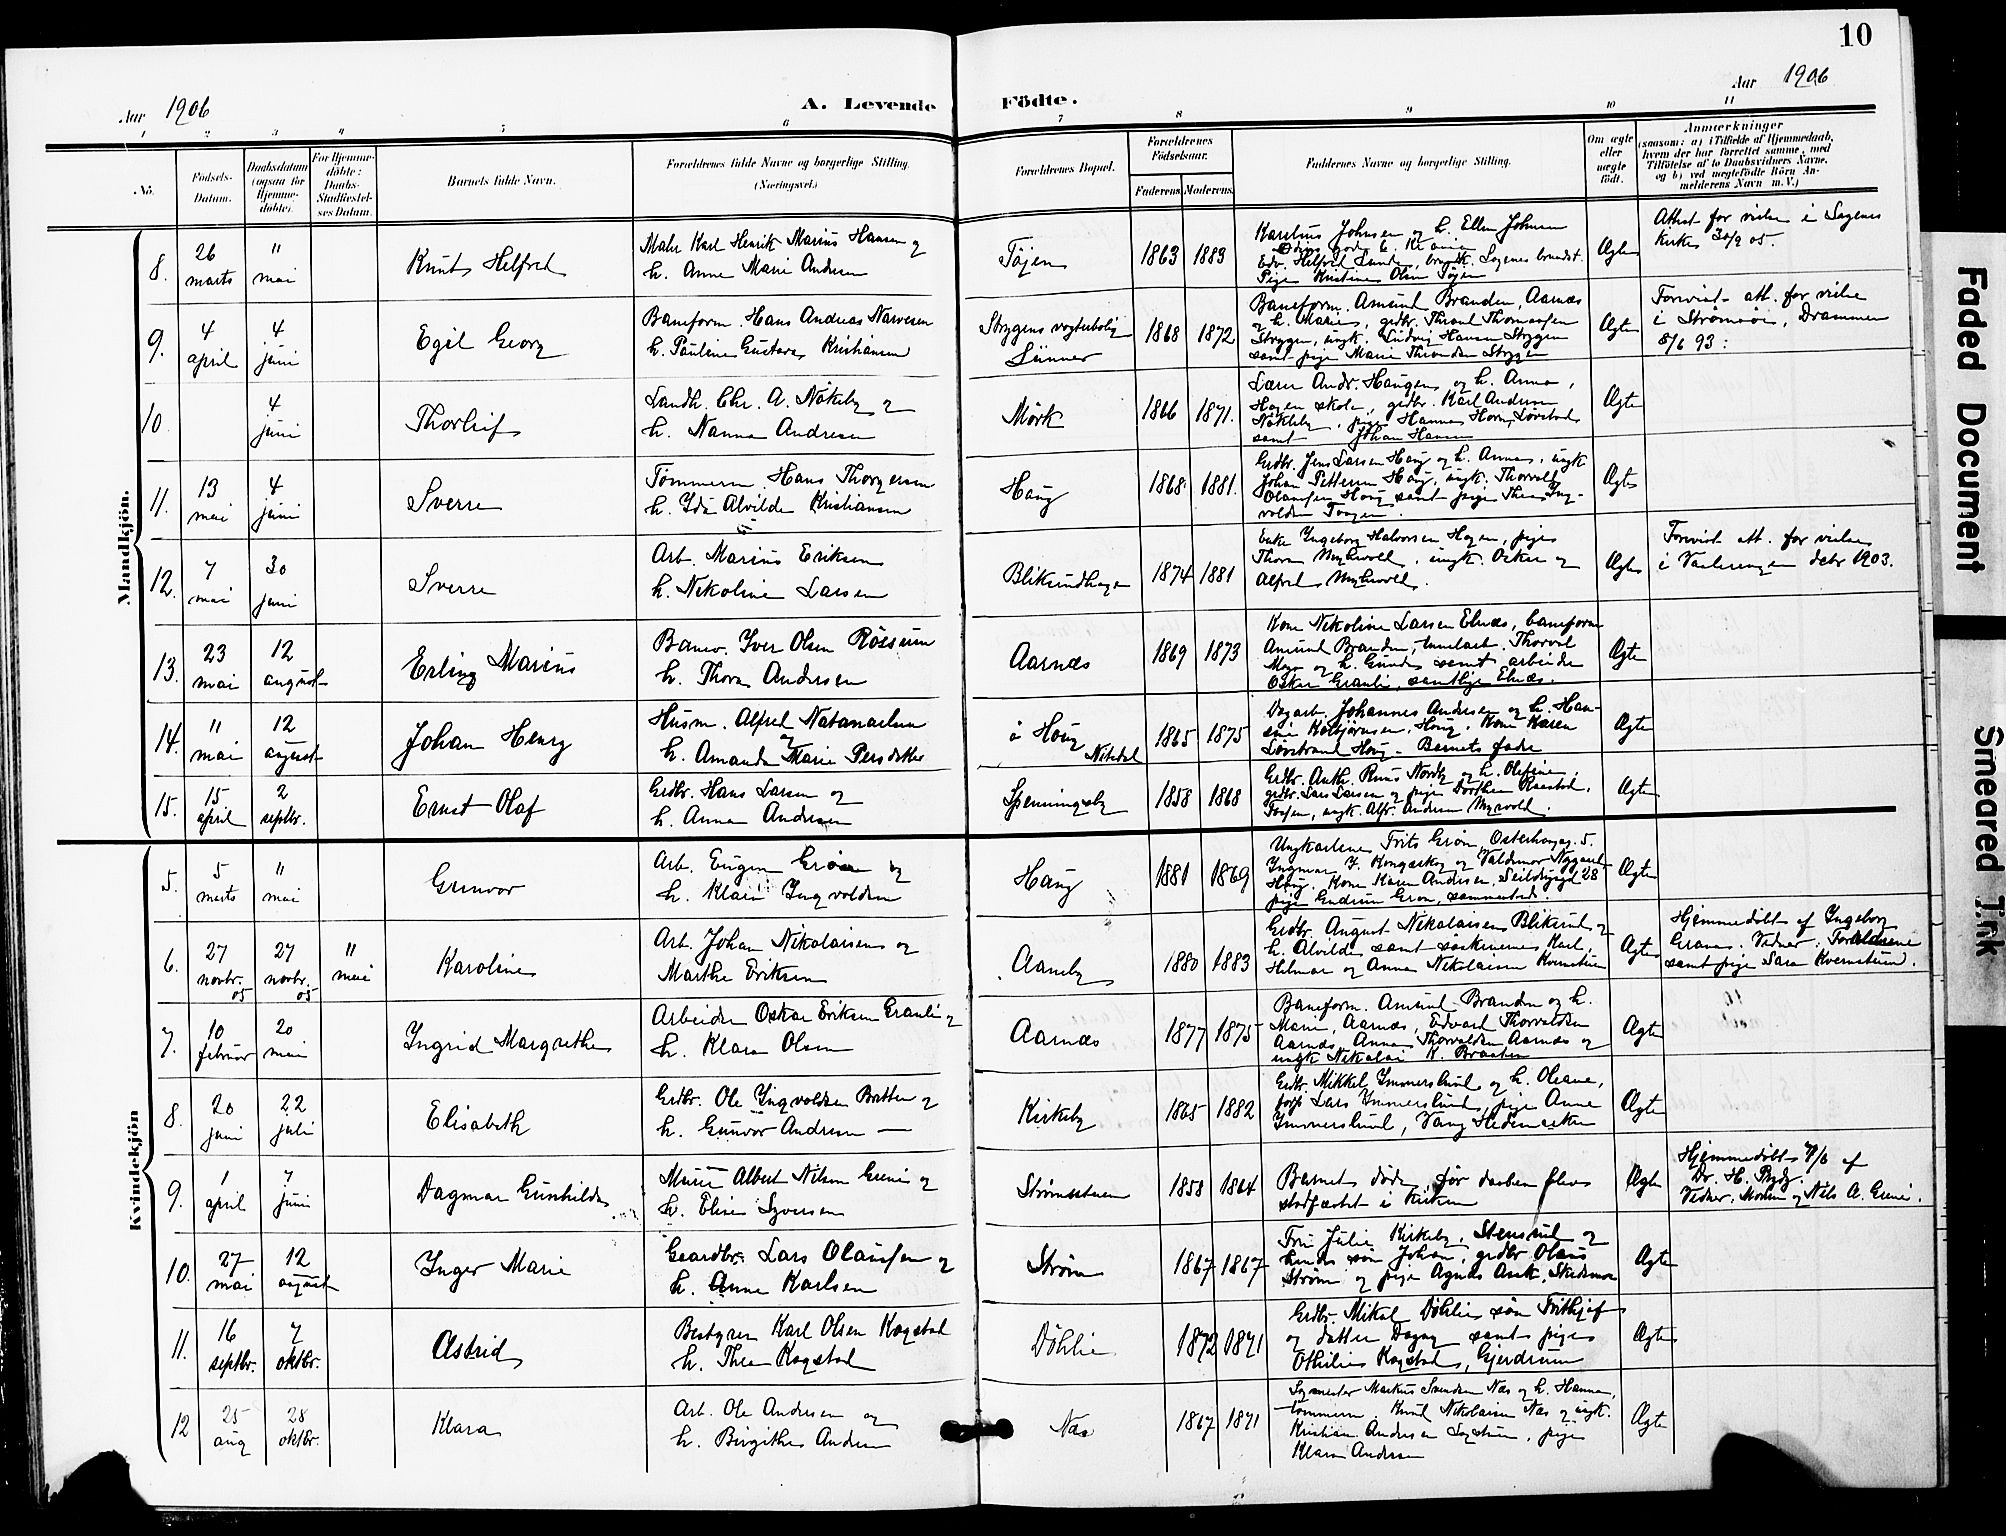 10
Aar 1906
A. Levende Födte.
Aar 1906
1 2 3 4 5 6 7 8 9 10 11
No.
Födsels-Datum.
Daabsdatum (ogsaa for Hjemme-döbte).
For Hjemme-döbte: Daabs-Stadfæstel-ses Datum.
Barnets fulde Navn.
Forældrenes fulde Navne og borgerlige Stilling.
(Næringsvei.)
Forældrenes Bopæl.
Forældrenes Födselsaar.
Faderens Moderens
Faddernes Navne og borgerlige Stilling.
Om ægte eller uægte födt.
Anmærkninger
(saasom: a) i Tilfælde af Hjemmedaab, hvem der har forrettet samme, med Tilföielse af to Daabsvidners Navne, og b) ved uægtefödte Börn An-melderens Navn m. V.)
Mandkjön.
8. 26 marts
" mai
Knut Helfred
Maler Karl Henrik Marius Hansen og
h. Anna Marie Andersen
Töjen
1863 1883
Karelius Johnsen og h. Ellen Johnsen
Edv. Helfred Lunde,
Pige Kristine Olsen Töjen
Ægte
Attest for vielse i Sagenes
Kirke 30/9 05.
9. 4 april
4 juni
Egil Georg
Baneform. Hans Andreas Narvesen
h. Pauline Gustava Kristiansen
Strygens vogterbolig
Lunner
1868 1872
Baneform. Amund Branden, Aarnæs
og h. Marie, grdbr. Thrond Thomassen
Stryggen, ungk. Ludvig Hansen Stryggen
samt pige Marie Throndsen Stryggen
Ægte
Forevist att. for vielse
i Strömsöi, Drammen
8/6 93:
10.
4 juni
Thorleif
Landh. Chr. A. Nökleby og
h. Nanna Andresen
Mörk
1866 1871.
Lærer Andr. Haugen og h. Anna,
Hagen skole, grdbr. Karl Andersen
Nökleby, pige Hanna Horn, Lövstad
samt Johan Hansen
Ægte
11. 13 mai
4 juni
Sverre
Tömmerm. Hans Thorgersen
h. Ida Alvilde Kristiansen
Haug
1868 1881.
Grdbr. Jens Larsen Haug og h. Anna, ungk
Johan Pettersen Haug, ungk. Thorvald
Olaussen Haug samt pige Thea Ing-
voldsen
Ægte
12. 7 mai
30 juni
Sverre
Arb. Marius Eriksen
h. Nikoline Larsen
Bliksrudhagen
1874 1881
Enke Ingeborg Halvorsen Hagen, pige
Thora Myhrvold, ungk. Oskar og
Alfred Myhrvold.
Ægte
Forevist att. for vielse
i Vaalerengen decbr 1903.
13. 23 mai
12 august
Erling Marius
Banev. Iver Olsen Rössum
h. Thora Andersen
Aarnæs
1869 1873
Kone Nikoline Larsen Elnæs, baneform
Amund Branden, Thorvald
Moen og h. Gunda samt arbeider
Oskar Granli, samtlige Elnæs.
Ægte
14. " mai
12 august
Johan Henry
Husm. Alfred Natanaelsen
og
h. Amanda Marie Persdatter
ö Haug
Nitedal
1865 1875
Dagarb. Johannes Andersen og h. Han-
sine Kolbjörnsen, Haug, Kone Karen
Lövstrand Haug - Barnets fader
Ægte
15. 15 april
2 septbr.
Ernst Olaf
Grdbr. Hans Larsen og
h. Anna Andersen
Spenningsby
1858 1868
Grdbr. Anth. Nordby og h. Olefine,
grdbr. Lars Larsen og pige Dorthea Raastad,
ungk. Alfr. Andersen Myrvold.
Ægte
Kvindekjön
5. 5 marts
" mai
Gunvor
Arb. Eugen Gröm og
h. Klara Ingvoldsen
Haug
1881 1869
Ungkarlene Frits Gröm, Osterhausg. 5.
Ingmar J. Kongsskog og Valdemar Nygaard
Haug. Kone Karen Andersen, Seildugsgd 28
pige Gudrun Grøn, sammesteds.
Ægte
6. 27 novbr. 05
27 novbr. 05
" mai
Karoline
Arb. Johan Nikolaisen og
Marthe Eriksen
Aaneby
1880 1883
Grdbr. August Nikolaisen Bliksrud og
h. Alvilde samt söskinnene Karl,
Helmar og Anna Nikolaisen Kvernstuen
Ægte
Hjemmedöbt af Ingeborg
Grana. Vidner: Forældrene
samt pige Sara Kvernstuen.
7. 10 februar
20 mai
Ingrid Margrethe
Arbeider Oskar Eriksen Granli og
h. Klara Olsen
Aarnæs
1877 1875
Baneform. Amund Branden og h.
Marie, Aarnæs, Edvard Thorvaldsen
Aarnæs, Anna Thorvaldsen Aarnæs og
ungk Nikolai K. Braaten
Ægte
8. 20 juni
22 juli
Elisabeth
Grdbr. Ole Ingvoldsen Bratten og
h. Gunvor Andersen —
Kirkeby
1865 1882
Grdbr. Mikkel Immerslund og h. Oleane,
Lars Immerslund, pige Anne
Immerslund, Vang Hedemarken
Ægte
9. 1 april
7 juni
Dagmar Gunhilde
Murer Albert Nilsen Greni og
h. Elise Syversen
Strömsstuen
1858 1864
Barnet döde för daaben blev
stadfæstet i kirken
Ægte
Hjemmedöbt 7/6 af
Dr. H. Prydz.
Vidner: Moderen og Nils A. Greni.
10. 27 mai
12 august
Inger Marie
Gaardbr. Lars Olaussen og
h. Anna Karlsen
Ström
1867 1867
Fru Julie Kirkeby, Stensrud og
hendes sön Johan, grdbr Olaus
Ström og pige Agnes Ask, Skedsmo
Ægte
11. 16 septbr.
7 oktbr.
Astrid
Bestyrer Karl Olsen Kogstad
h. Thea Kogstad
Döhlie
1872 1871
Grdbr. Mikal Döhlie sön Frithjof
og datter Dagny samt pige
Othilie Kogstad, Gjerdrum
Ægte
12 25 aug
28 oktbr.
Klara
Arb. Ole Andersen og
h. Birgithe Andersen
Næs
1867 1871
Sagmester Markus Svendsen Næs og h. Hanna,
tömmerm. Knud Nikolaisen Næs og ungk.
Kristian Andersen Sagstuen, pige
Klara Andersen
Ægte
Faded Document
Smeared Ink